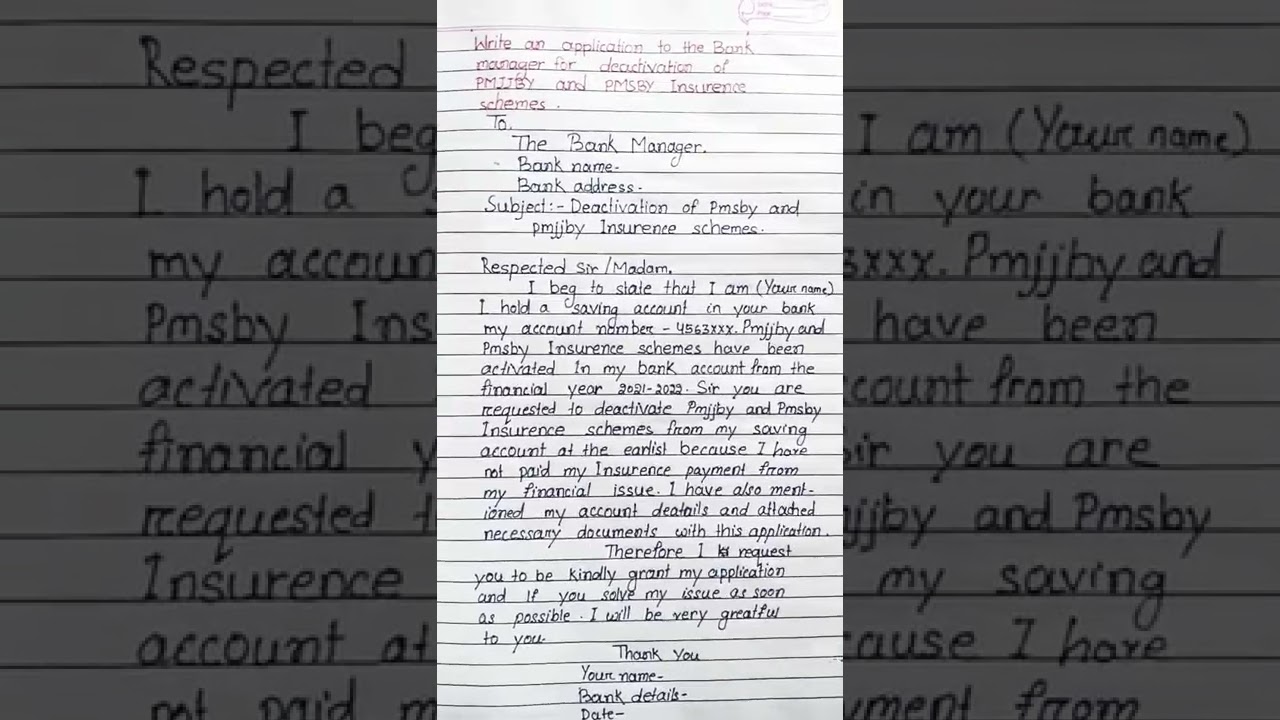 Write an application to the Bank
manager for deactivation of
PMJJBY and PMSBY Insurence
schemes.
To,
The Bank Manager.
Bank name-
Bank address-
Subject:- Deactivation of Pmsby and
pmjjby Insurence schemes.
Respected Sir/Madam,
I beg to state that I am (Your name)
I hold a saving account in your bank
my account nomber - 4563xxx. Pmjjby and
Pmsby Insurence schemes have been
activated In my bank account from the
financial year 2021-2022. Sir you are
requested to deactivate Pmjjby and Pmsby
Insurence schemes from my saving
account at the earlist because I have
not paid my Insurence payment from
my financial issue. I have also ment-
ioned my account deatails and attached
necessary documents with this application.
Therefore I request
you to be kindly grant my application
and if you solve my issue as soon
as possible. I will be very greatful
to you.
Thank You
Your name-
Bank details-
Date-